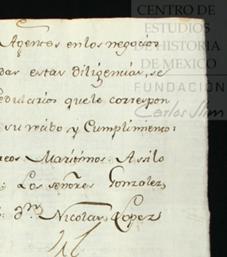 CENTRO DE
ESTUDIOS
DE HISTORIA
DE MEXICO
FUNDACIÓN
Carlos Slim
Agencer en los negocios
dar estar diligencias, se
edularios que le correspon
su recibo y Cumplimiento:
Maritimos. Asi lo
Los señores Gonzalez,
Nicolas Lopez